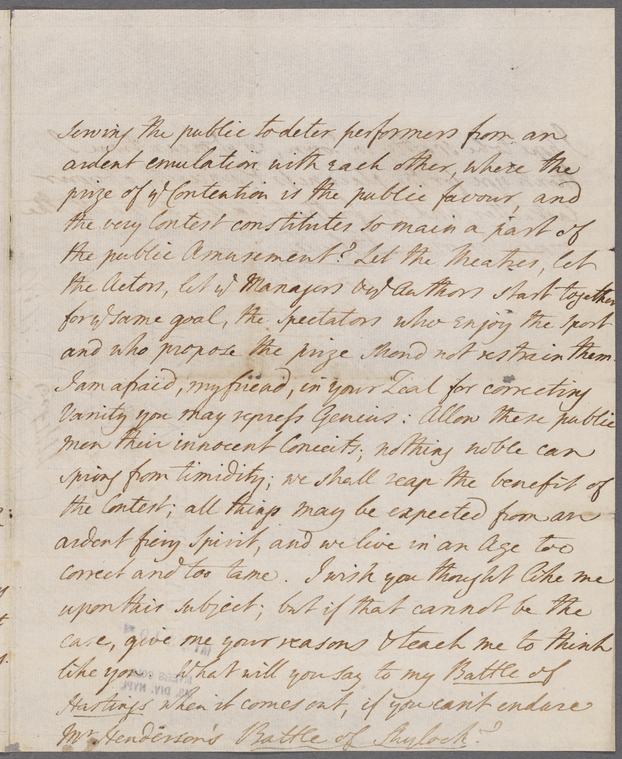 serving the public to deter performers from an
ardent emulation with each other, where the
prize of yͤ Contention is the public favour, and
the very Contest constitutes so main a part of
the public Amusement? Let the Theatres, let
the Actors, let yͤ Managers & yͤ Authors start together
for yͤ same goal, the Spectators who enjoy the Sport
and who propose the prize shou'd not restrain them.
I am afraid, my friend, in your Zeal for correcting
Vanity you may repress Genius: Allow these public
men their innocent Conceits; nothing noble can
spring from timidity; we shall reap the benefit of
the Contest; all things may be expected from an
ardent fiery Spirit, and we live in an Age too
correct and too tame. I wish you thought like me
upon this subject; but if that cannot be the
case, give me your reasons & teach me to think
like you. What will you say to my Battle of
Hastings when it comes out, if you can't endure
Mr Henderson's Battle of Shylock?
MS. DIV. NYPL